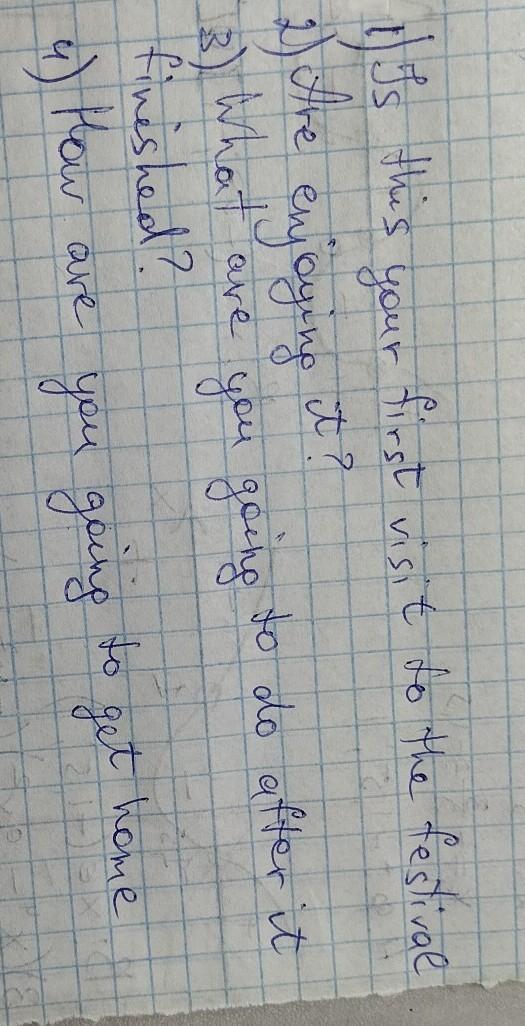 1) Is this your first visit to the festival
2) Are enjoying it?
3) What are you going to do after it
finished?
4) How are you going to get home